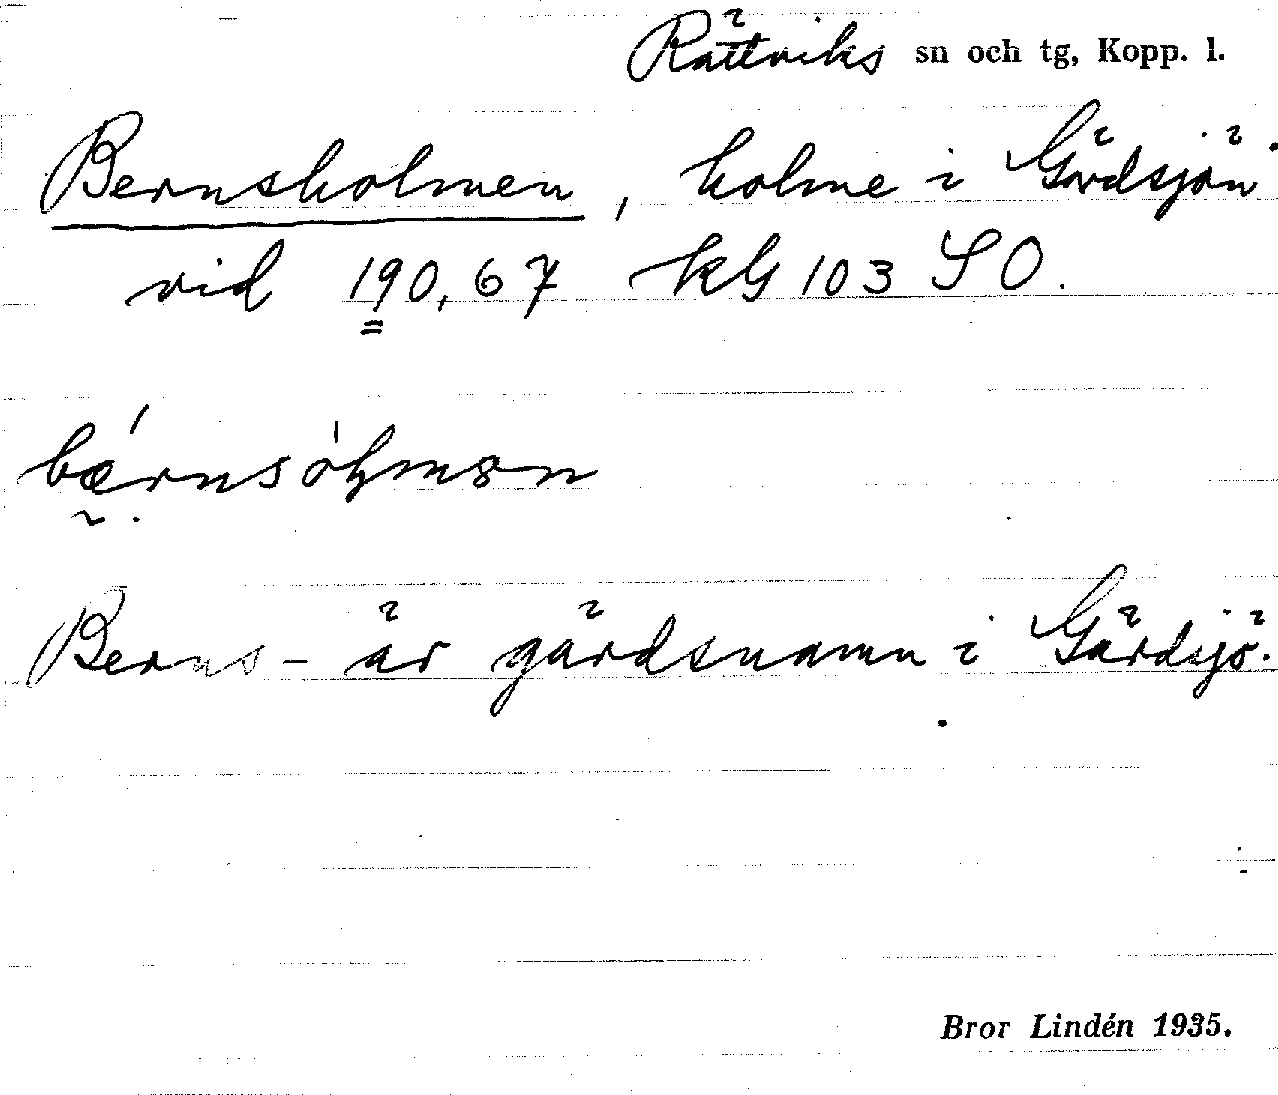 Rättviks sn och tg, Kopp. l.
Bernsholmen, holme i Gärdsjön
vid 190,67 kG 103 SO.
bǽ̰rnsòɫmən
Berns- är gårdsnamn i Gärdsjö.
Bror Lindén 1935.